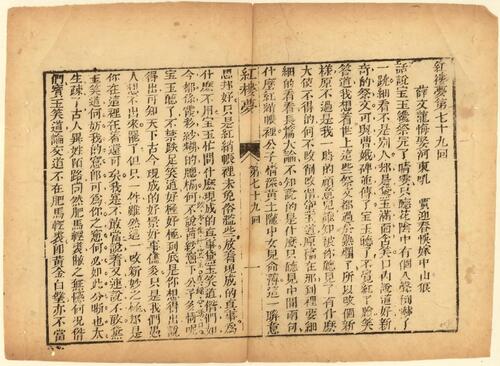 紅樓夢第七十九回
薛文龍悔娶河東吼　賈迎春悞嫁中山狼
話說寶玉纔祭完了晴雯只聽花陰中有個人聲倒嚇了
一跳細看不是別人却是黛玉滿面含笑口內說道好新
奇的祭文可與曹娥碑並傳了寶玉聽了不覺紅了臉笑
答道我想着世上這些祭文都過於熟爛了所以改個新
樣原不過是我一時的頑意兒誰知被你聽見了有什麽
大使不得的何不改削改削黛玉道原稿在那裡倒要細
細的看看長篇大論不知說的是什麽只聽見中間兩句
什麽紅綃帳裡公子情深黃土隴中女兒命薄這一聯意
紅樓夢　第七十九回　一
思却好只是紅綃帳裡未免俗濫些放着現成的真事爲
什麽不用寶玉忙問什麽現成的真事黛玉笑道偺們如
今都係霞彩紗糊的窓槅何不說茜紗窓下公子多情呢
寶玉聽了不禁跌足笑道好極好極到底是你想得出說
得出可知天下古今現成的好景好事儘多只是我們愚
人想不出來罷了但只一件雖然這一改新妙之極却是
你在這裡住着還可已我實不敢當說着又連說不敢黛
玉笑道何妨我的窓卽可爲你之窓何必如此分晰也太
生疎了古人異姓陌路尚然肥馬輕裘敝之無憾何況偺
們寶玉笑道論交道不在肥馬輕裘卽黃金白璧亦不當